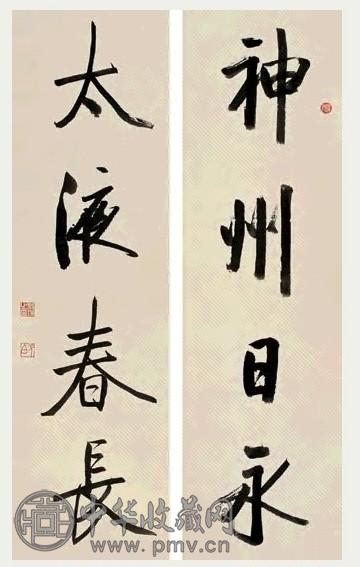 神州日永
太液春長
中华收藏网
www.pmv.cn